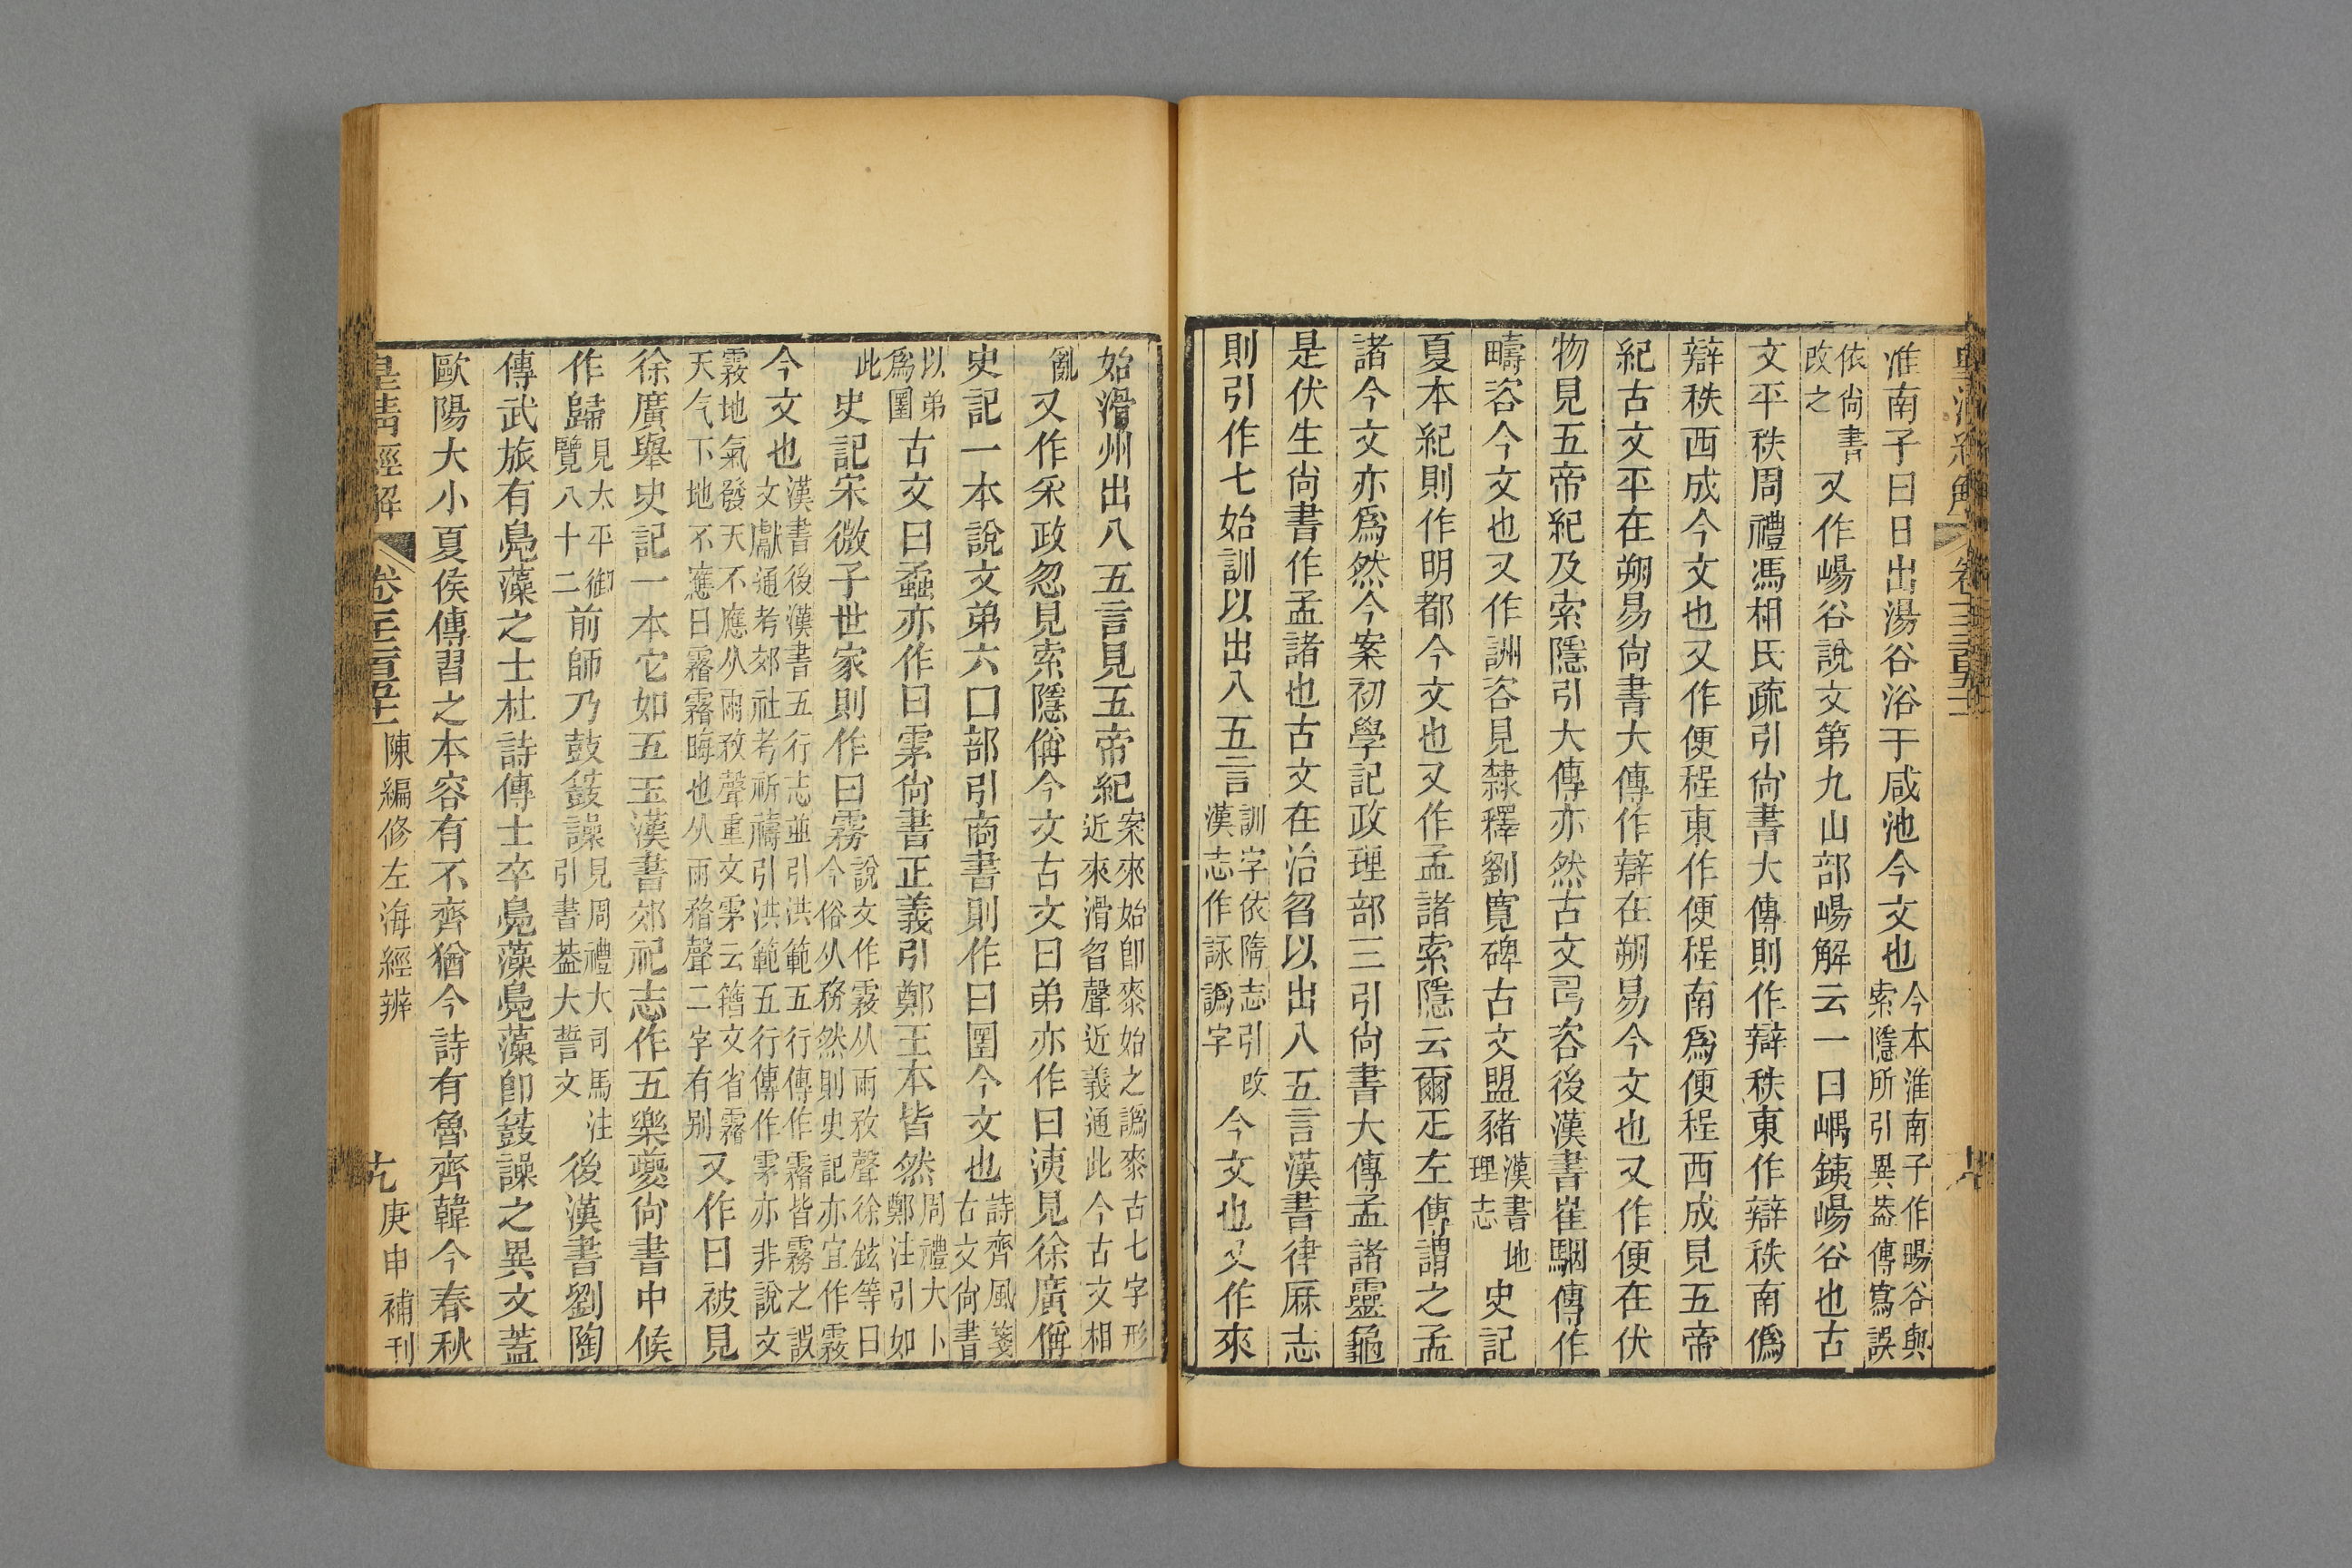 淮南子曰日出湯谷浴于咸池今文也今本淮南子作暘谷與索隱所引異葢傳寫誤
依尙書改之又作崵谷說文第九山部崵解云一曰嵎銕崵谷也古
文平秩周禮馮相氏疏引尙書大傳則作辯秩東作辯秩南僞
辯秩西成今文也又作便程東作便程南爲便程西成見五帝
紀古文平在朔易尙書大傳作辯在朔易今文也又作便在伏
物見五帝紀及索隱引大傳亦然古文咨後漢書崔駰傳作
疇咨今文也又作詶咨見隸釋劉寬碑古文盟豬漢書地理志史記
夏本紀則作明都今文也又作孟諸索隱云爾疋左傳謂之孟
諸今文亦爲然今案初學記政理部三引尙書大傳孟諸靈龜
是伏生尙書作孟諸也古文在治曶以出出八五言漢書律厤志
則引作七始訓以出入五言訓字依隋志引改漢志作詠譌字今文也又作來
始滑州出八五言見五帝紀案來始卽桼始之譌桼古七字形近來滑曶聲近義通此今古文相
亂又作采政忽見索隱偁今文古文曰弟亦作曰洟見徐廣偁
史記一本說文弟六口部引商書則作曰圛今文也詩齊風箋古文尙書
以弟爲圛古文曰蟊亦作曰雺尙書正義引鄭王本皆然周禮大卜鄭注引如
此史記宋微子世家則作曰霧說文作霚从雨敄聲徐鉉等曰今俗从務然則史記亦宜作霚
今文也漢書後漢書五行志並引洪範五行傳作霿皆霧之誤文獻通考郊社考祈禱引洪範五行傳作雺亦非說文
霚地氣發天不應从雨敄聲重文雺云籒文省霿天气下地不應曰霿霿晦也从雨瞀聲二字有別又作曰被見
徐廣舉史記一本它如五玉漢書郊祀志作五樂夔尙書中候
作歸見太平御覽八十二前師乃鼓鼖譟見周禮大司馬注引書葢大誓文後漢書劉陶
傳武旅有鳧藻之士杜詩傳士卒鳧藻鳧藻卽鼖譟之異文蓋
歐陽大小夏侯傳習之本容有不齊猶今詩有魯齊韓今春秋
皇清經解 陳編修左海經辨 庚申補刊